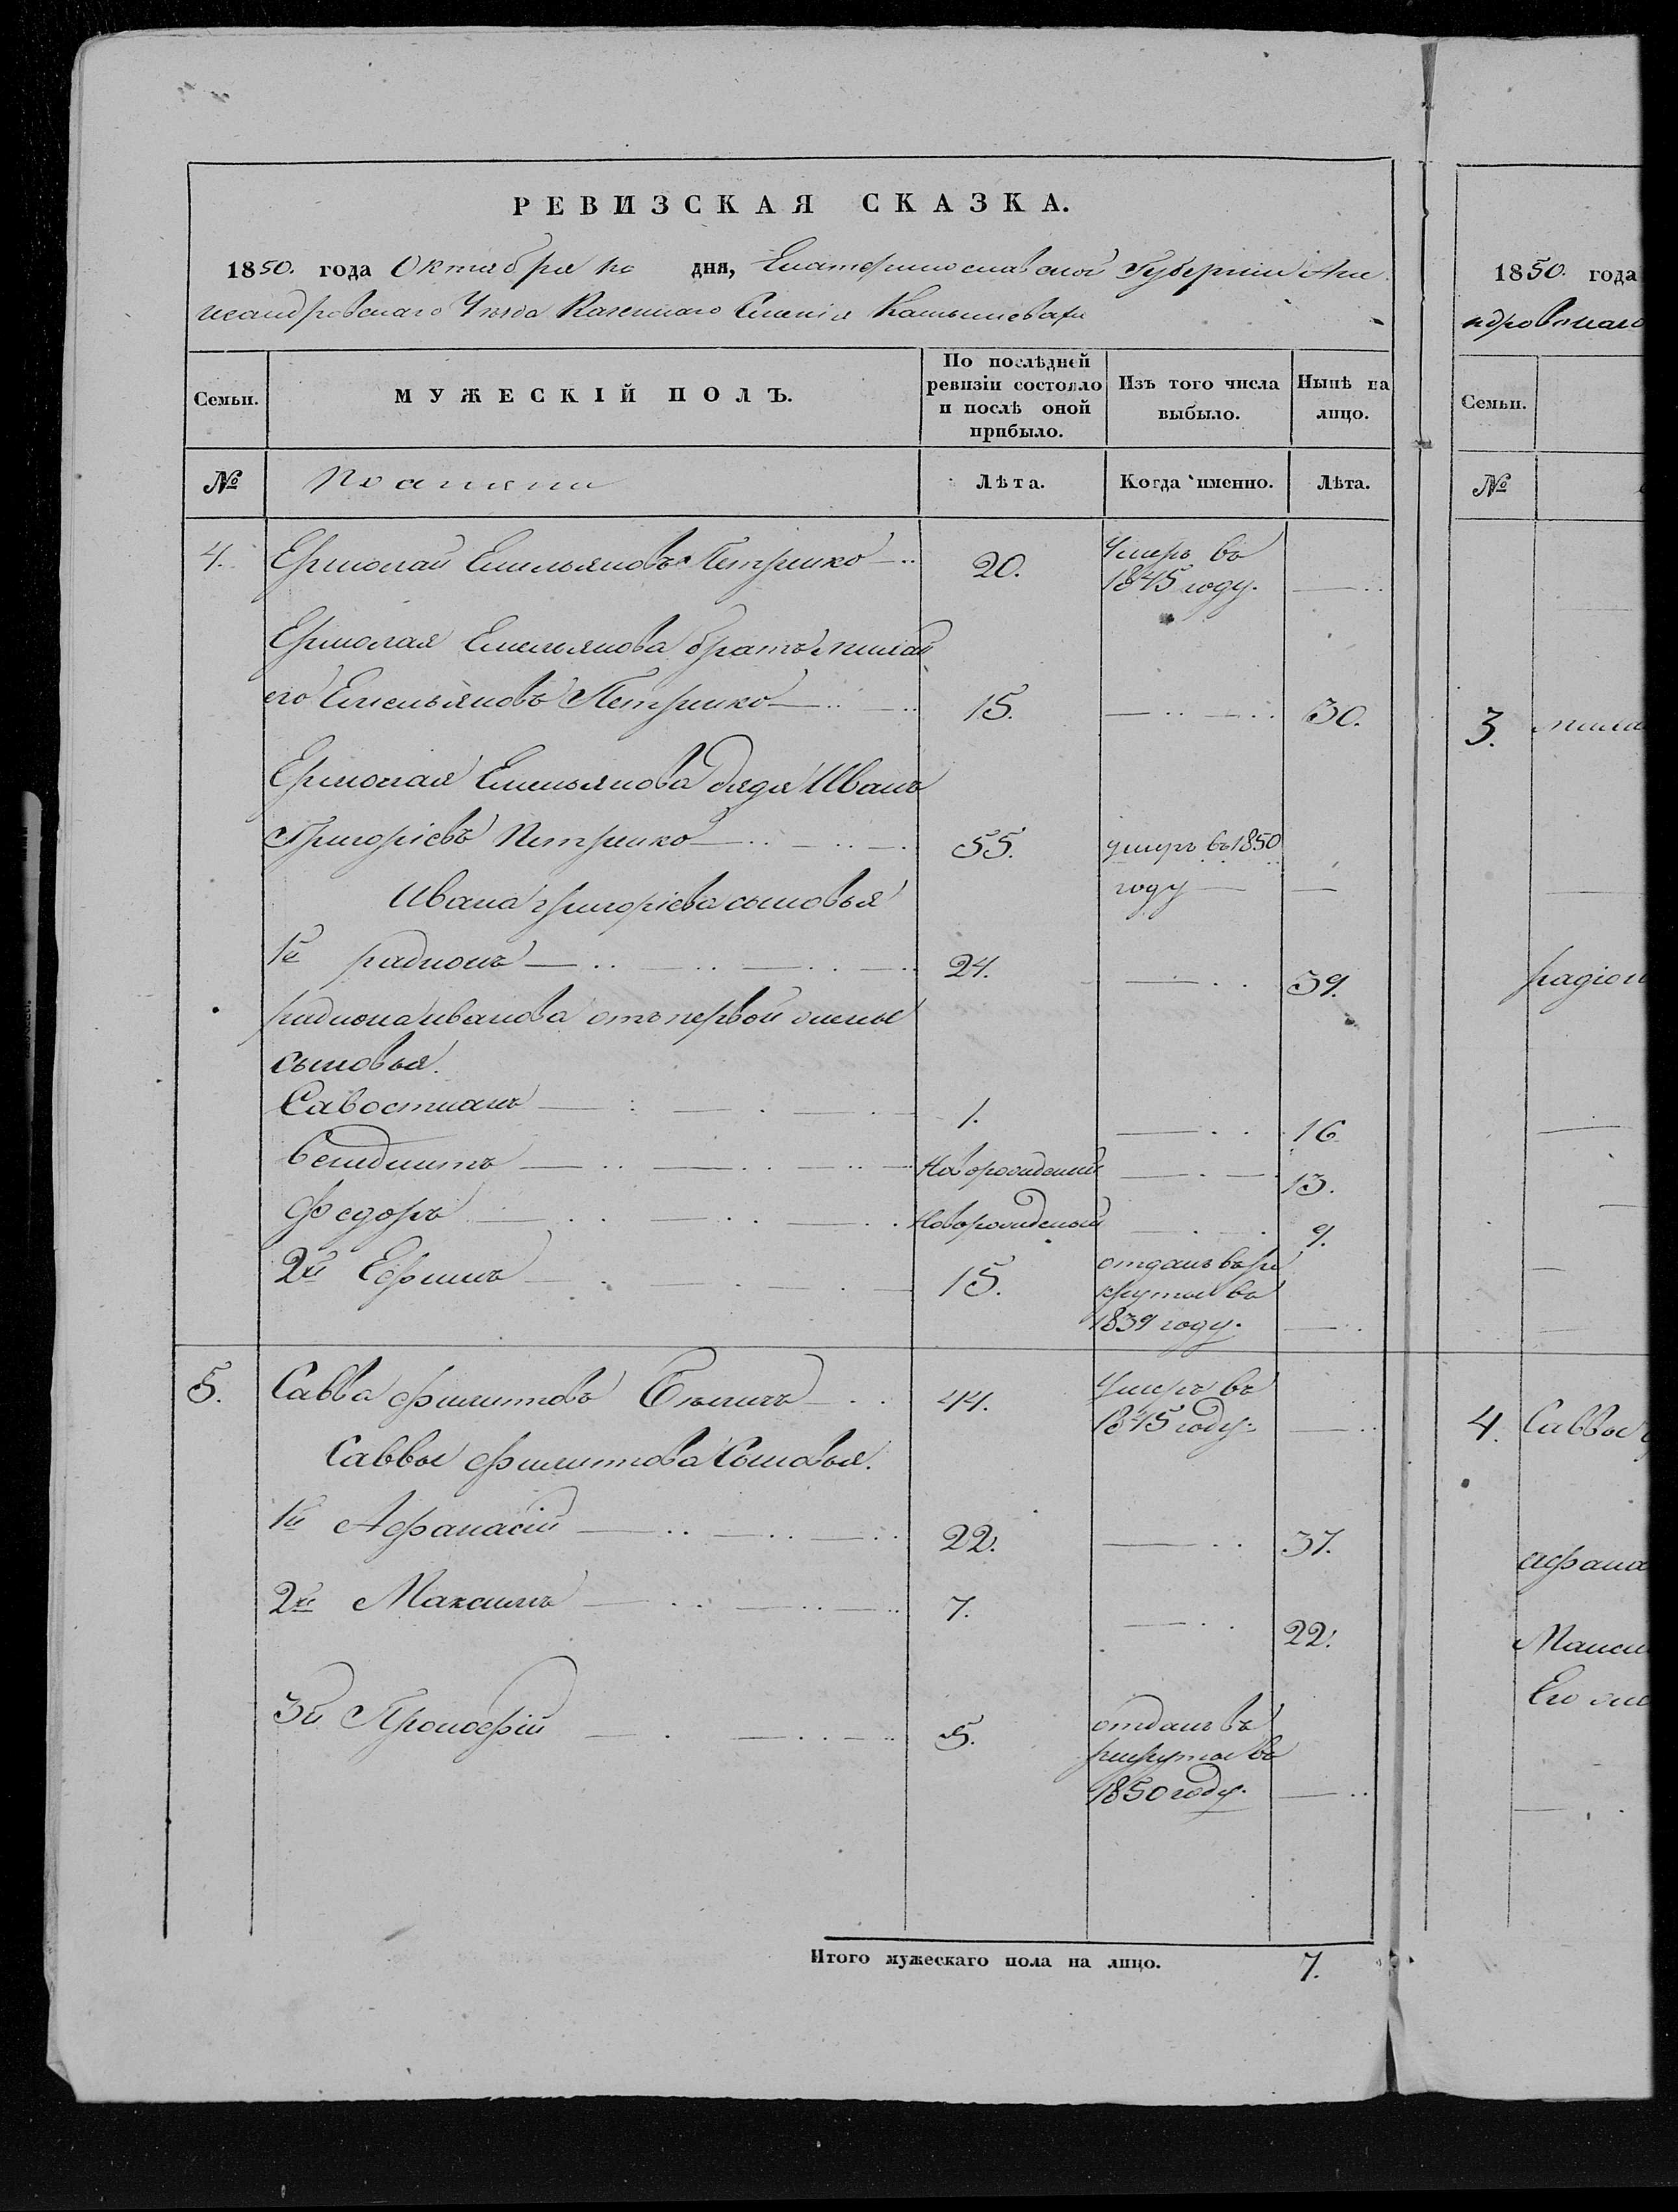 РЕВИЗСКАЯ СКАЗКА.
1850. года Октября дня, Екатеринославской Губерніи Але
ксандровскаго Уѣзда Казеннаго Селенія
Семьи.
МУЖЕСКІЙ ПОЛЪ.
По послѣдней ревизіи состояло и послѣ оной прибыло.
Изъ того числа выбыло.
Нынѣ на лицо.
№
Лѣта.
Когда именно.
Лѣта.
4. Ермолай Емельяновъ Петренко 20. Умеръ въ 1845 году.
Ермолая Емельянова братъ Михай
ло Емельяновъ Петренко 15. 30.
Ермолая Емельянова дядя Иванъ
Григоріевъ Петренко 55. умеръ въ 1850 году
Ивана Григоріева сыновья
1й радионъ 24. 39.
радиона иванова отъ первой жены
сыновья.
Савостианъ 1. 16
Бенидиктъ Новорожденный 13.
Федоръ Новорожденый 9.
2й Ефимъ 15. отданъ въ ре
круты въ
1839 году.
5. Савва Филиповъ 44. Умеръ въ
1845 году.
Саввы Филипова Сыновья.
1й Афанасій 22. 37.
2й Максимъ 7. 22.
3й Прокофій 5. отданъ въ
рекруты въ
1850 году.
Итого мужескаго пола на лицо. 7.
1850. года
ндровскаго
Семьи.
№
3. Миха
радіон
4. Саввы
афана
Макси
Его же